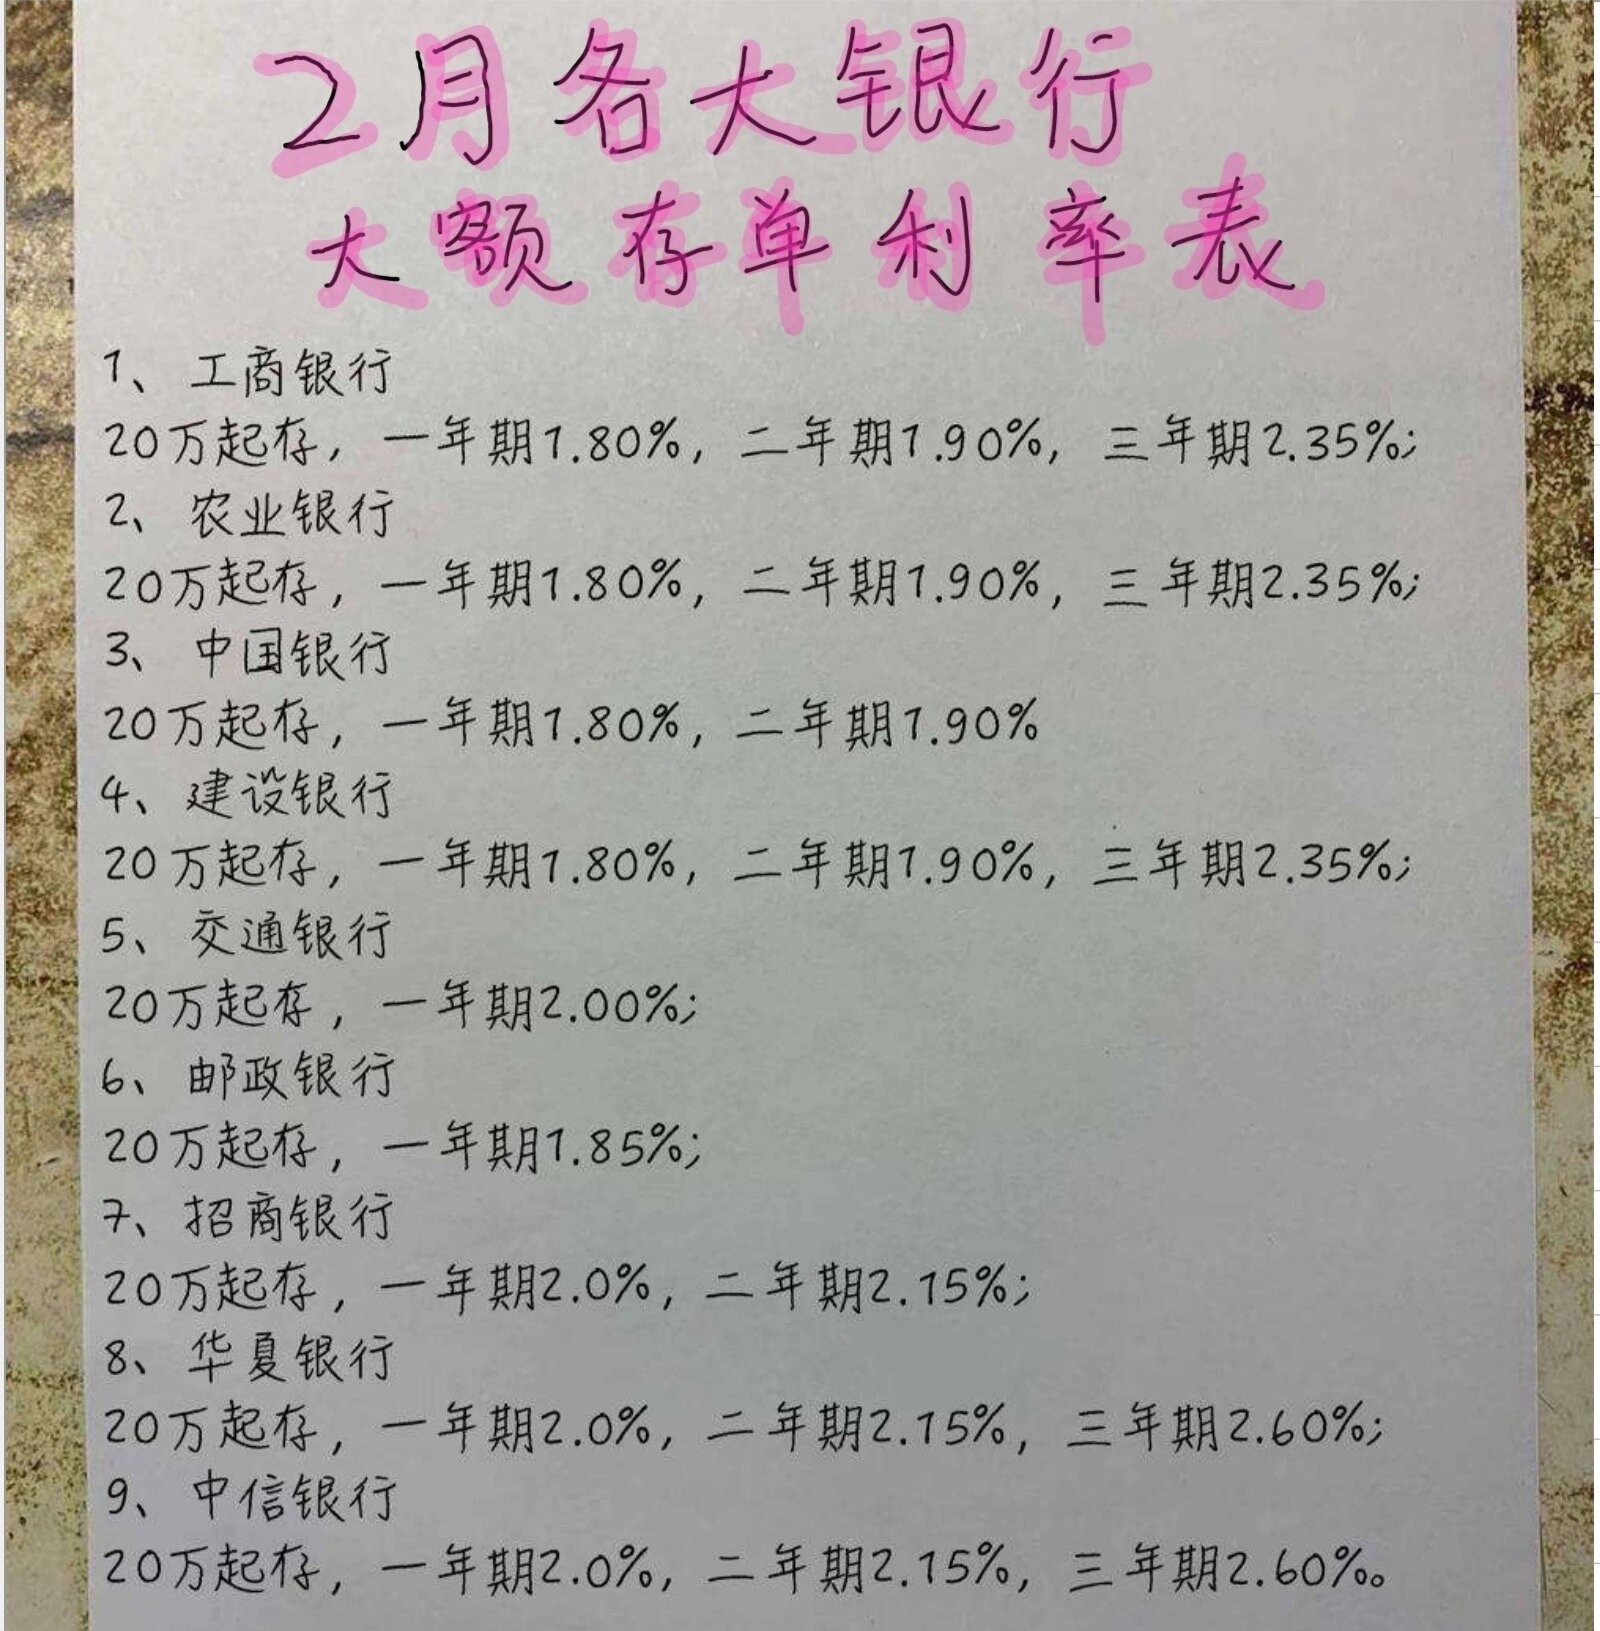 2月各大银行
大额存单利率表
1、工商银行
20万起存，一年期1.80%，二年期1.90%，三年期2.35%；
2、农业银行
20万起存，一年期1.80%，二年期1.90%，三年期2.35%；
3、中国银行
20万起存，一年期1.80%，二年期1.90%
4、建设银行
20万起存，一年期1.80%，二年期1.90%，三年期2.35%；
5、交通银行
20万起存，一年期2.00%；
6、邮政银行
20万起存，一年期1.85%；
7、招商银行
20万起存，一年期2.0%，二年期2.15%；
8、华夏银行
20万起存，一年期2.0%，二年期2.15%，三年期2.60%；
9、中信银行
20万起存，一年期2.0%，二年期2.15%，三年期2.60%。